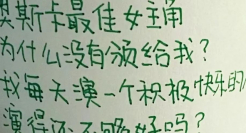 奥斯卡最佳女主角
为什么没有颁给我？
我每天演一个积极快乐的
演得还不够好吗？